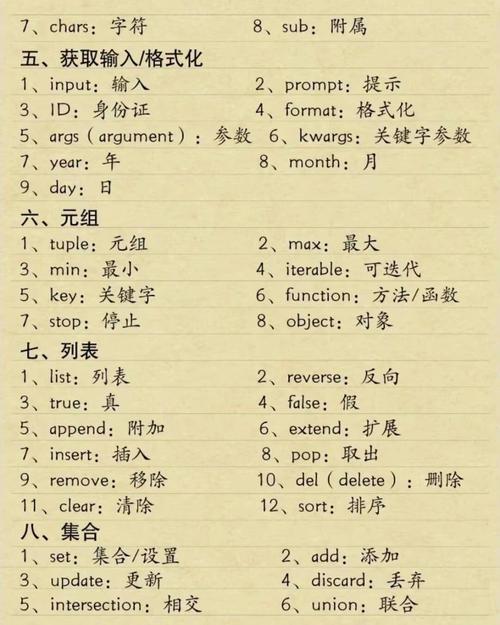 7、chars：字符 8、sub：附属
五、获取输入/格式化
1、input：输入 2、prompt：提示
3、ID：身份证 4、format：格式化
5、args（argument）：参数 6、kwargs：关键字参数
7、year：年 8、month：月
9、day：日
六、元组
1、tuple：元组 2、max：最大
3、min：最小 4、iterable：可迭代
5、key：关键字 6、function：方法/函数
7、stop：停止 8、object：对象
七、列表
1、list：列表 2、reverse：反向
3、true：真 4、false：假
5、append：附加 6、extend：扩展
7、insert：插入 8、pop：取出
9、remove：移除 10、del（delete）：删除
11、clear：清除 12、sort：排序
八、集合
1、set：集合/设置 2、add：添加
3、update：更新 4、discard：丢弃
5、intersection：相交 6、union：联合